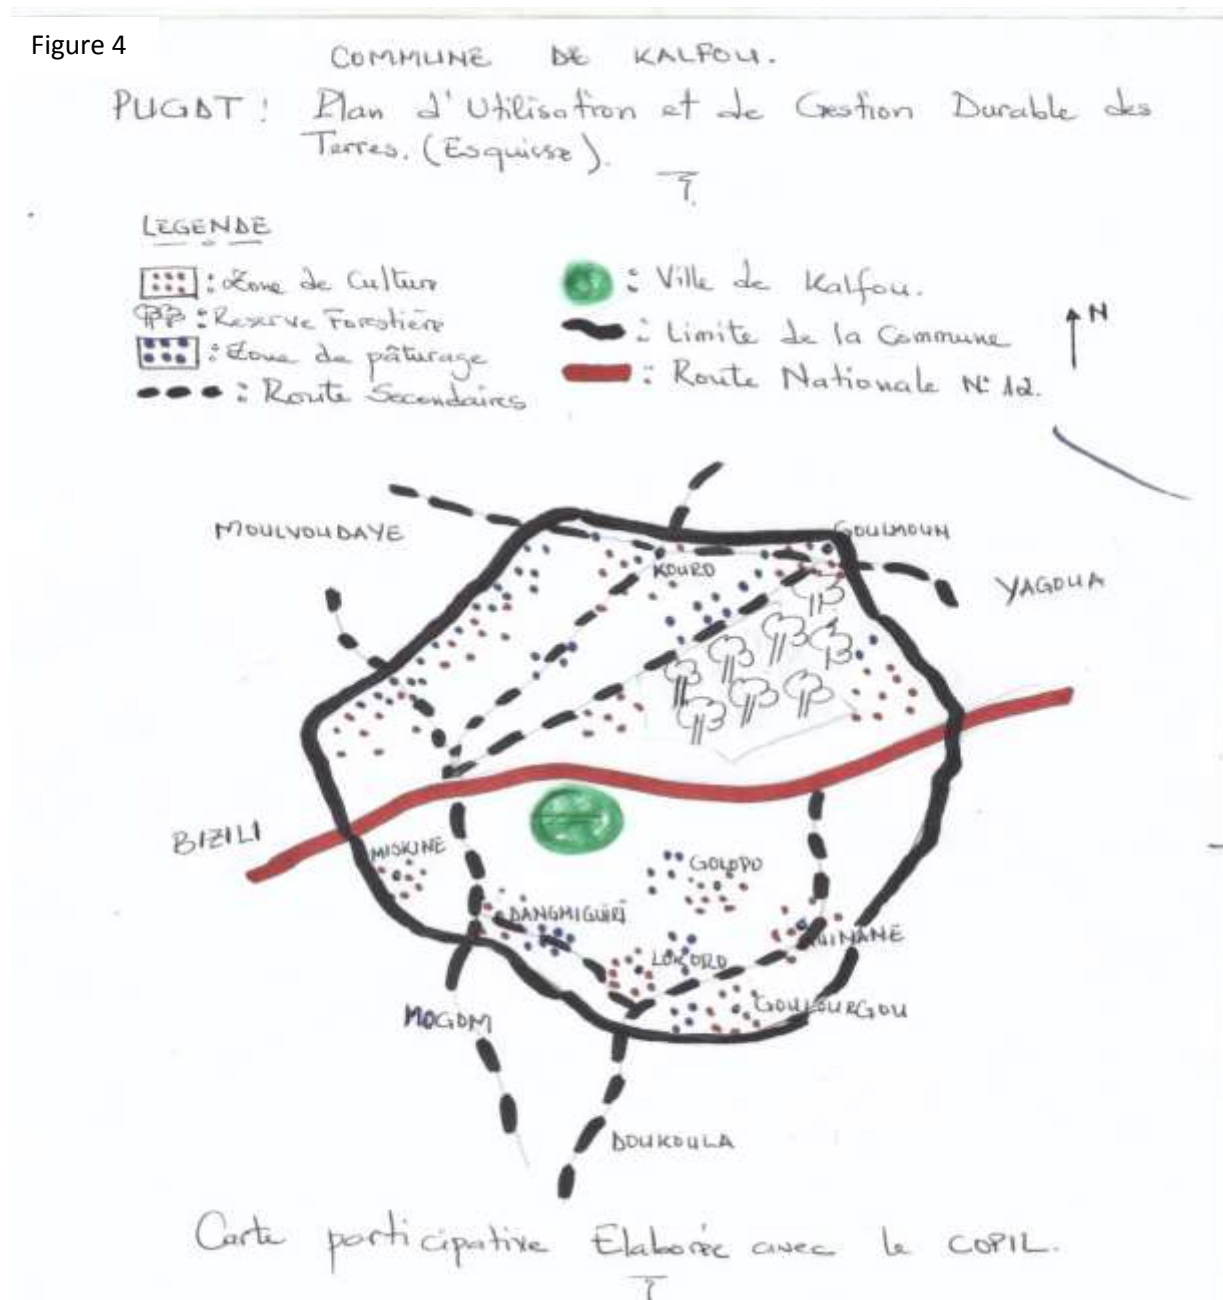 Figure 4
COMMUNE DE KALFOU.
PUGDT : Plan d'Utilisation et de Gestion Durable des
Terres. (Esquisse).
LEGENDE
: Zone de Culture
: Reserve Forestière
: Zone de pâturage
: Route Secondaires
: Ville de Kalfou.
: Limite de la Commune
: Route Nationale N° 12.
N
MOULVOUDAYE
GOULMOUN
KOURO
YAGOUA
BIZILI
MISKINE
GOLOPO
DANGMIGUIRI
LOKORO
GUINANE
GOULOURGOU
MOGOM
DOUKOULA
Carte participative Elaborée avec le COPIL.